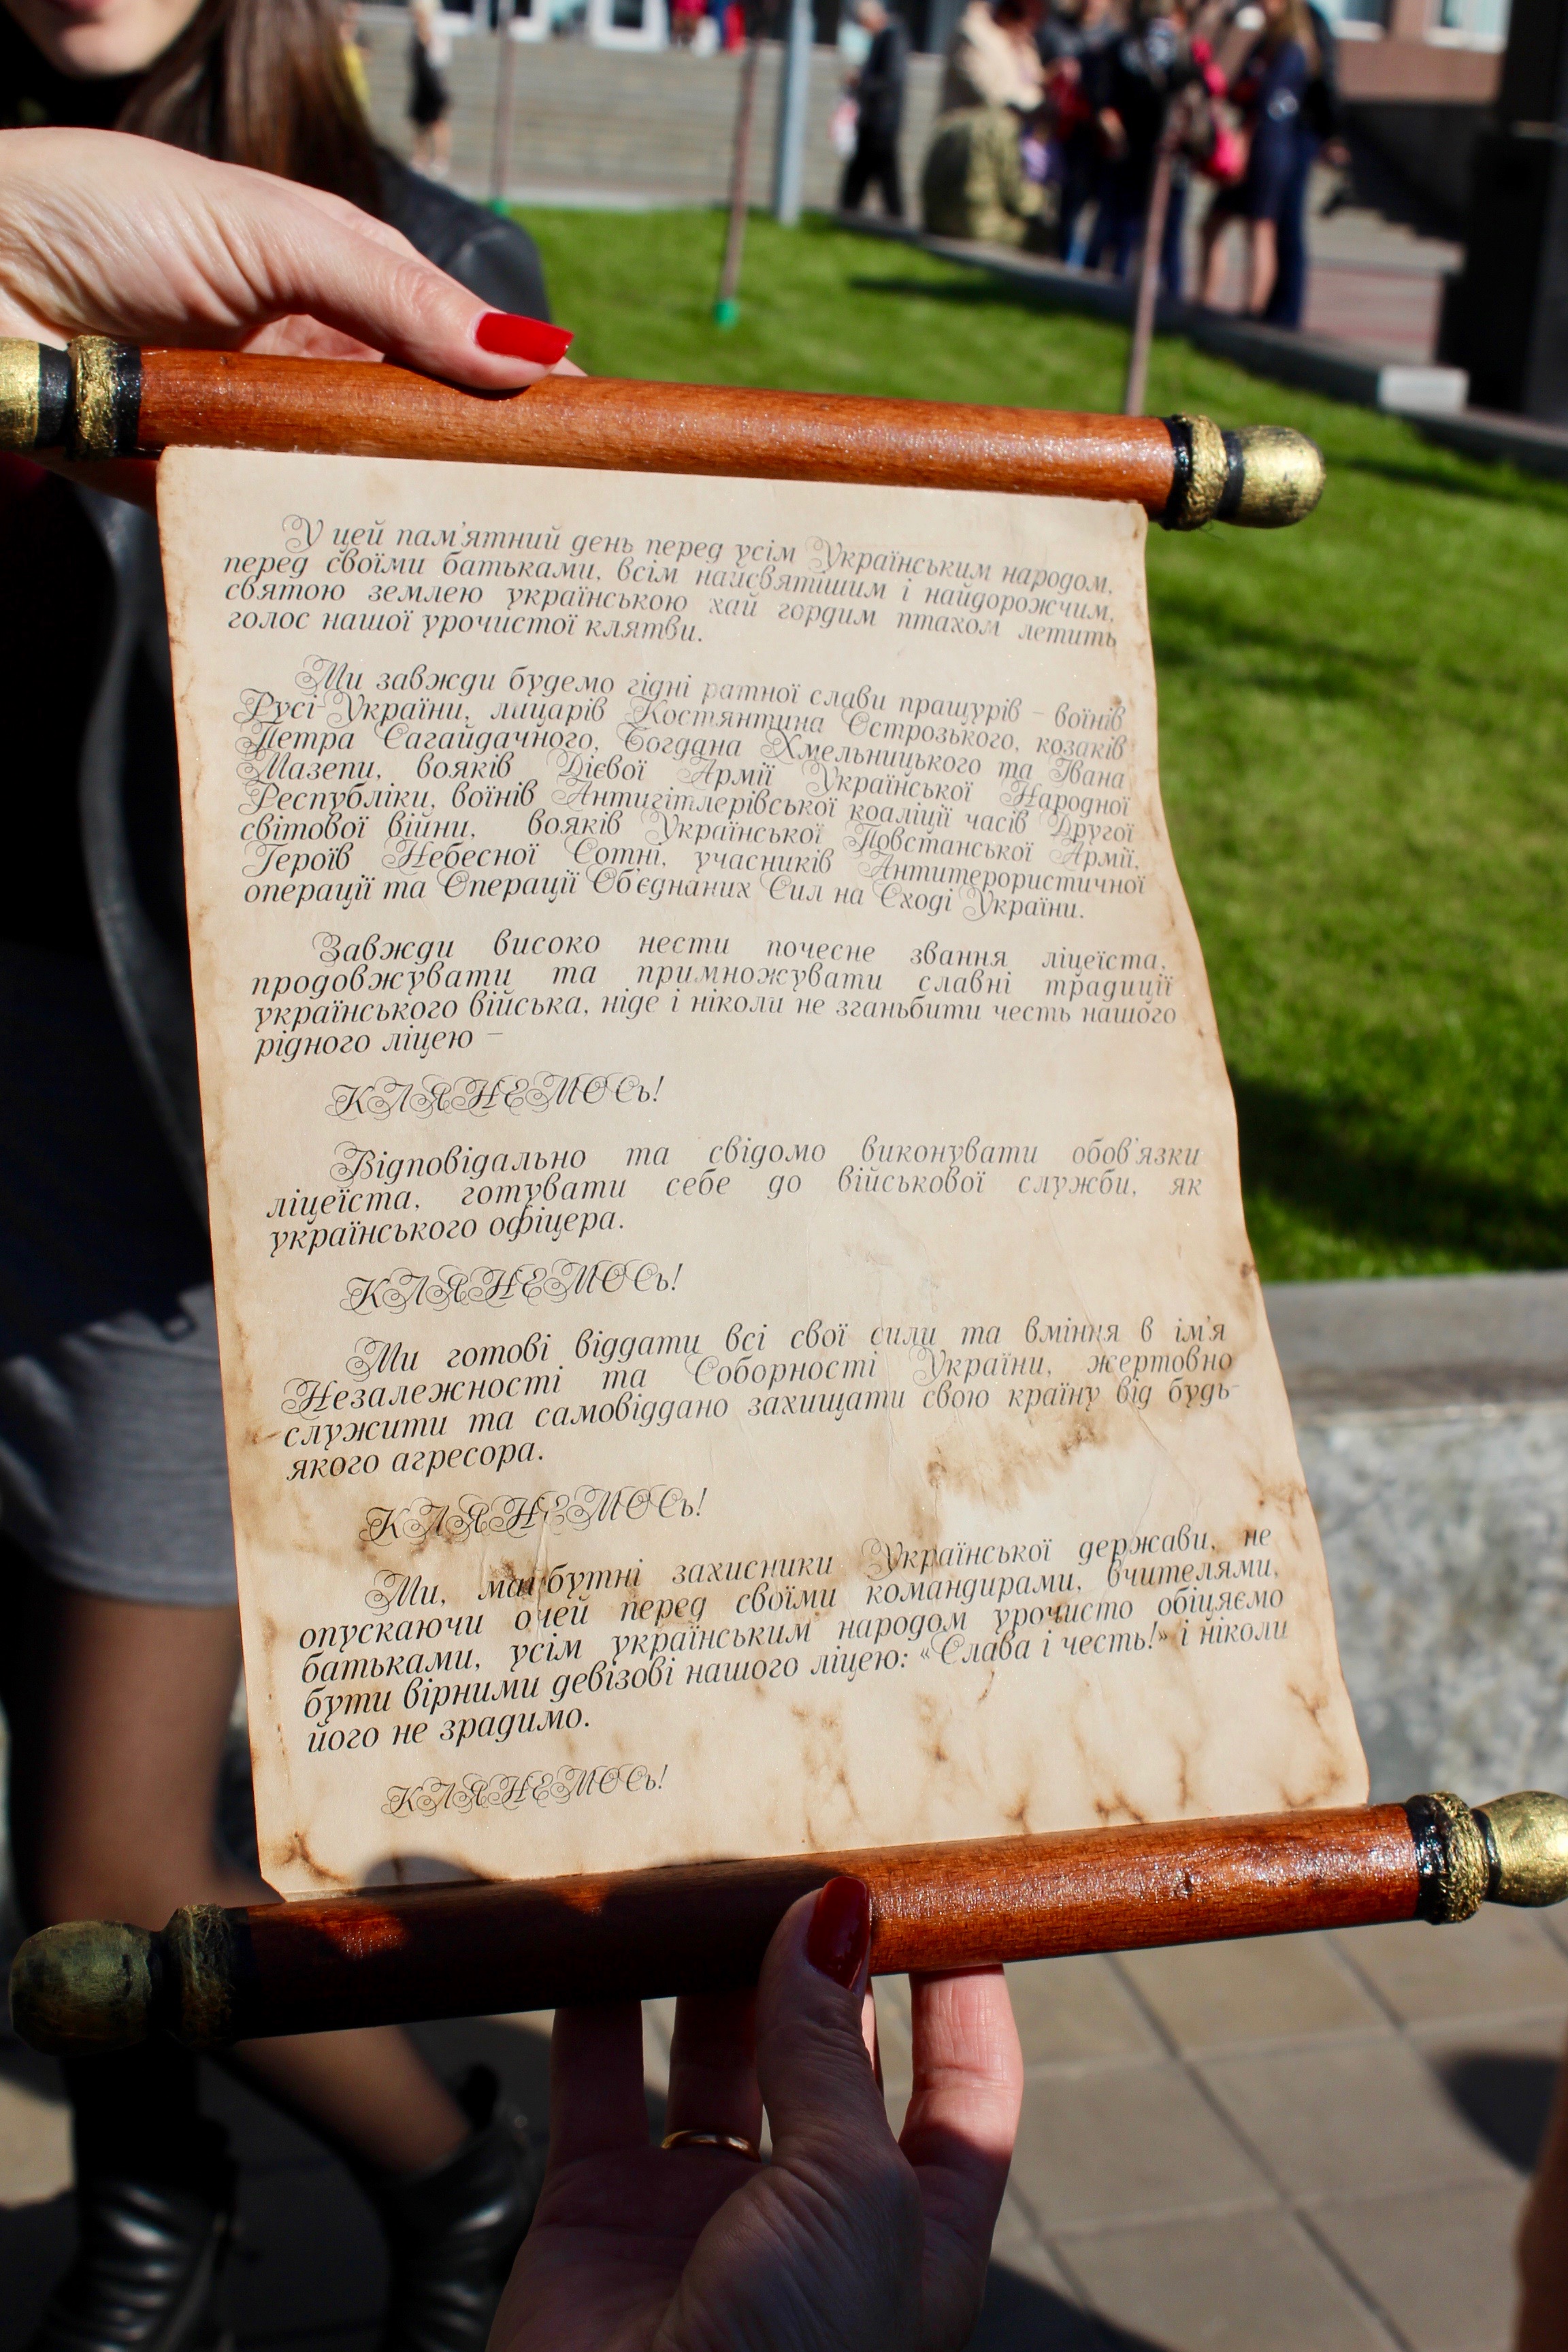 У цей пам'ятний день перед усім Українським народом,
перед своїми батьками, всім найсвятішим і найдорожчим,
святою землею українською хай гордим птахом летить
голос нашої урочистої клятви.
Ми завжди будемо гідні ратної слави пращурів – воїнів
Русі-України, лицарів Костянтина Острозького, козаків
Петра Сагайдачного, Богдана Хмельницького та Івана
Мазепи, вояків Дієвої Армії Української Народної
Республіки, воїнів Антигітлерівської коаліції часів Другої
світової війни, вояків Української Повстанської Армії,
Героїв Небесної Сотні, учасників Антитерористичної
операції та Операції Об'єднаних Сил на Сході України.
Завжди високо нести почесне звання ліцеїста,
продовжувати та примножувати славні традиції
українського війська, ніде і ніколи не зганьбити честь нашого
рідного ліцею –
КЛЯНЕМОСЬ!
Відповідально та свідомо виконувати обов'язки
ліцеїста, готувати себе до військової служби, як
українського офіцера.
КЛЯНЕМОСЬ!
Ми готові віддати всі свої сили та вміння в ім'я
Незалежності та Соборності України, жертовно
служити та самовіддано захищати свою країну від будь-
якого агресора.
КЛЯНЕМОСЬ!
Ми, майбутні захисники Української держави, не
опускаючи очей перед своїми командирами, вчителями,
батьками, усім українським народом урочисто обіцяємо
бути вірними девізові нашого ліцею: «Слава і честь!» і ніколи
його не зрадимо.
КЛЯНЕМОСЬ!